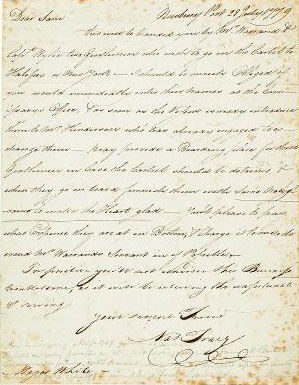 Newbury Port 28 July 1779
Dear Sam
This will be handed you by Mr. Warrand &
Capt. two Gentlemen who wish to go in the Cartel to
Halifax or New York — I should be much Obliged if
you would immediately enter their names at the Com-
missary's Office, & as soon as the Vessel is ready introduce
them to Mr. Henderson who has already engaged to ex-
change them — Pray provide a Boarding place for these
Gentlemen in Case the Cartel should be detained &
when they go on board furnish them with some
to make the Heart glad — You'll please to pay
what Expence they are at in Boston, & Charge it to me & do
send Mr. Warrands Servant in if Possible
I'm positive you'll not consider this Business
troublesome, as it will be relieving the unfortunate
& serving
Your sincere Friend
Nat Tracy
Major White